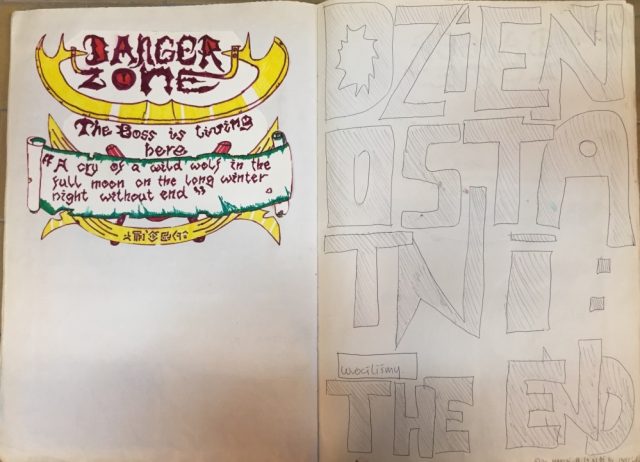 DANGER
ZONE
The Boss is living
here
"A cry of a wild wolf in the
full moon on the long winter
night without end"
DZIEŃ
OSTA
TNI :
wróciliśmy
THE END